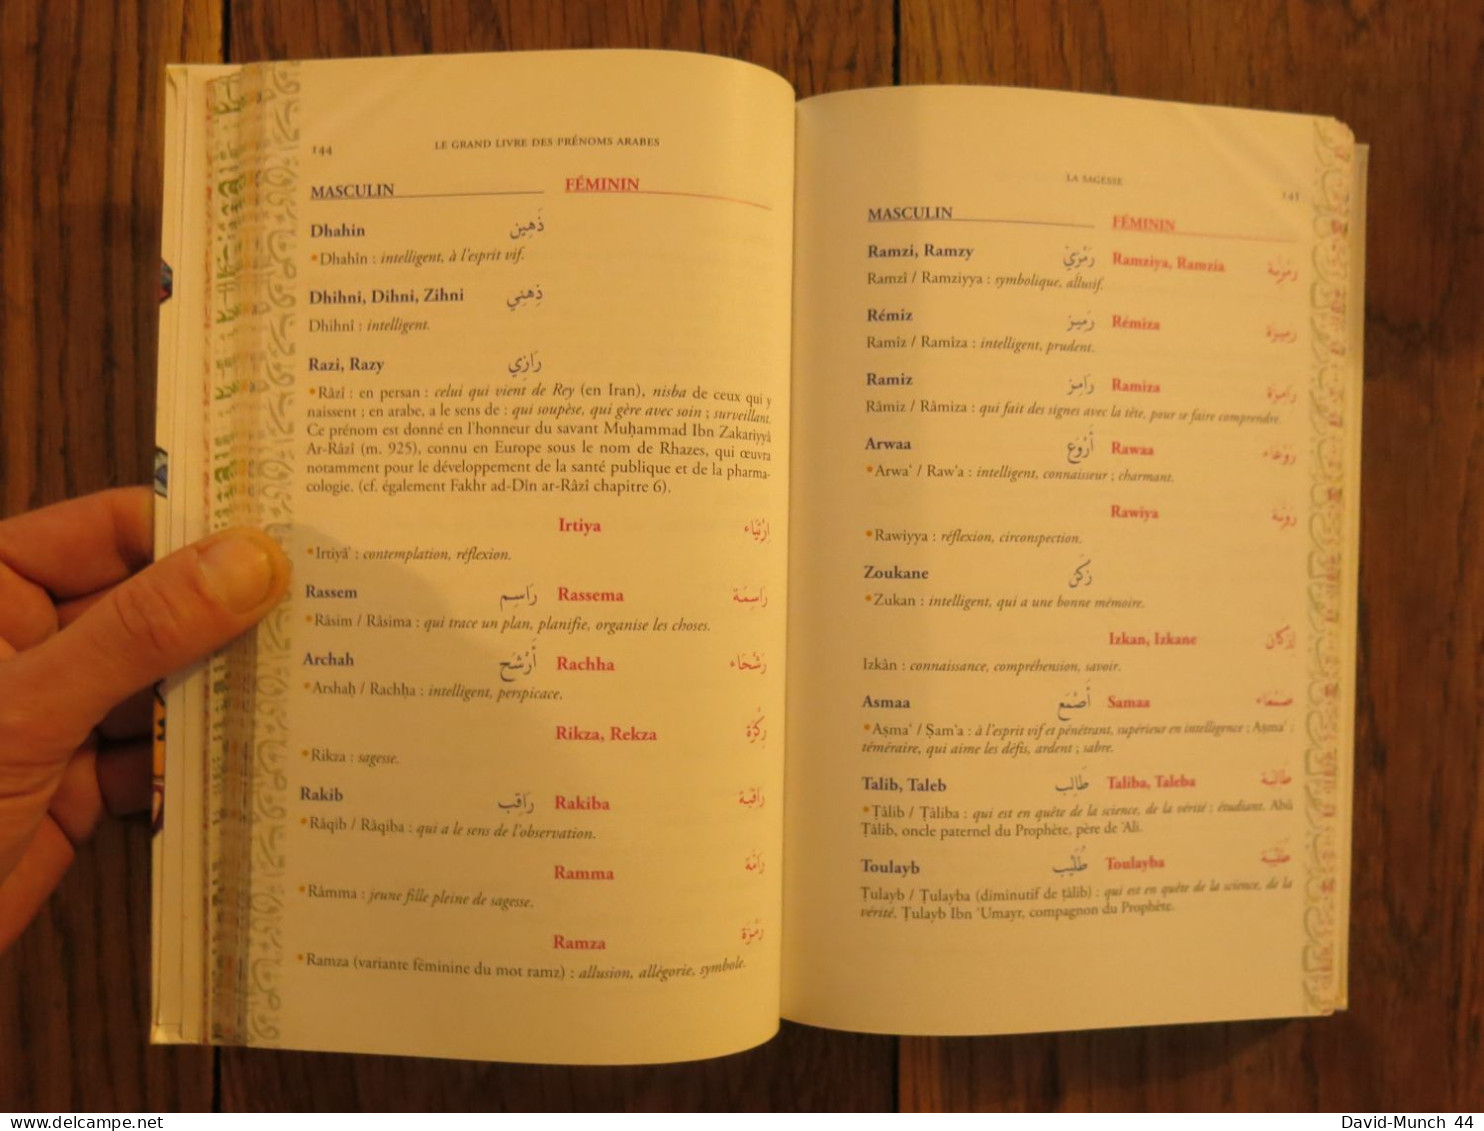 144
LE GRAND LIVRE DES PRÉNOMS ARABES
MASCULIN FÉMININ
Dhahin ذَهِين
•Dhahîn : intelligent, à l'esprit vif.
Dhihni, Dihni, Zihni ذِهنِي
Dhihnî : intelligent.
Razi, Razy رَازِي
•Râzî : en persan : celui qui vient de Rey (en Iran), nisba de ceux qui y
naissent ; en arabe, a le sens de : qui soupèse, qui gère avec soin ; surveillant.
Ce prénom est donné en l'honneur du savant Muḥammad Ibn Zakariyyâ
Ar-Râzî (m. 925), connu en Europe sous le nom de Rhazes, qui œuvra
notamment pour le développement de la santé publique et de la pharma-
cologie. (cf. également Fakhr ad-Dîn ar-Râzî chapitre 6).
Irtiya اِرْتِيَاء
•Irtiyâ' : contemplation, réflexion.
Rassem رَاسِم Rassema رَاسِمَة
•Râsim / Râsima : qui trace un plan, planifie, organise les choses.
Archah أَرْشَح Rachha رَشْحَاء
•Arshaḥ / Rachḥa : intelligent, perspicace.
Rikza, Rekza رِكْزَة
•Rikza : sagesse.
Rakib رَاقِب Rakiba رَاقِبَة
•Râqib / Râqiba : qui a le sens de l'observation.
Ramma رَامَّة
•Râmma : jeune fille pleine de sagesse.
Ramza رَمْزَة
•Ramza (variante féminine du mot ramz) : allusion, allégorie, symbole.
LA SAGESSE
145
MASCULIN FÉMININ
Ramzi, Ramzy رَمْزِيّ Ramziya, Ramzia رَمْزِيَّة
Ramzî / Ramziyya : symbolique, allusif.
Rémiz رَمِيز Rémiza رَمِيزَة
Ramîz / Ramîza : intelligent, prudent.
Ramiz رَامِز Ramiza رَامِزَة
Râmiz / Râmiza : qui fait des signes avec la tête, pour se faire comprendre.
Arwaa أَرْوَع Rawaa رَوعَاء
•Arwa' / Raw'a : intelligent, connaisseur ; charmant.
Rawiya رَوِيَّة
•Rawiyya : réflexion, circonspection.
Zoukane زُكَن
•Zukan : intelligent, qui a une bonne mémoire.
Izkan, Izkane إِزكَان
Izkân : connaissance, compréhension, savoir.
Asmaa أَصْمَع Samaa صَمْعَاء
•Aṣma' / Ṣam'a : à l'esprit vif et pénétrant, supérieur en intelligence ; Aṣma' :
téméraire, qui aime les défis, ardent ; sabre.
Talib, Taleb طَالِب Taliba, Taleba طَالِبَة
•Ṭâlib / Ṭâliba : qui est en quête de la science, de la vérité ; étudiant. Abû
Ṭâlib, oncle paternel du Prophète, père de 'Ali.
Toulayb طُلَيْب Toulayba طُلَيْبَة
Ṭulayb / Ṭulayba (diminutif de ṭâlib) : qui est en quête de la science, de la
vérité. Ṭulayb Ibn 'Umayr, compagnon du Prophète.
www.delcampe.net
David-Munch 44